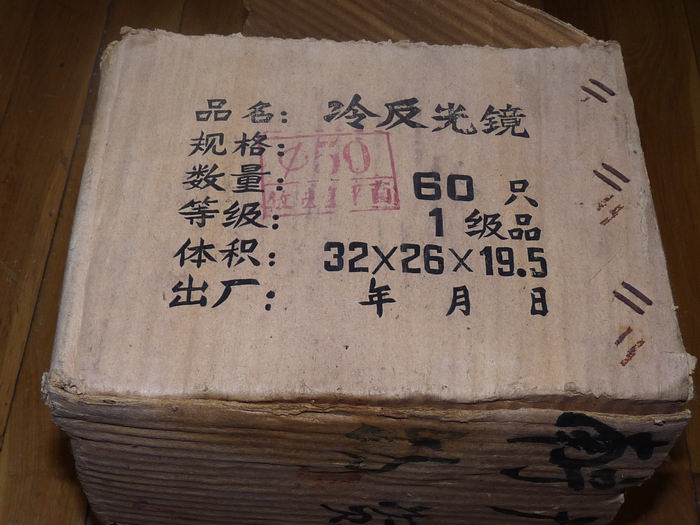 品名: 冷反光镜
规格: φ50
数量: 60 只
等级: 1 级品
体积: 32×26×19.5
出厂: 年 月 日